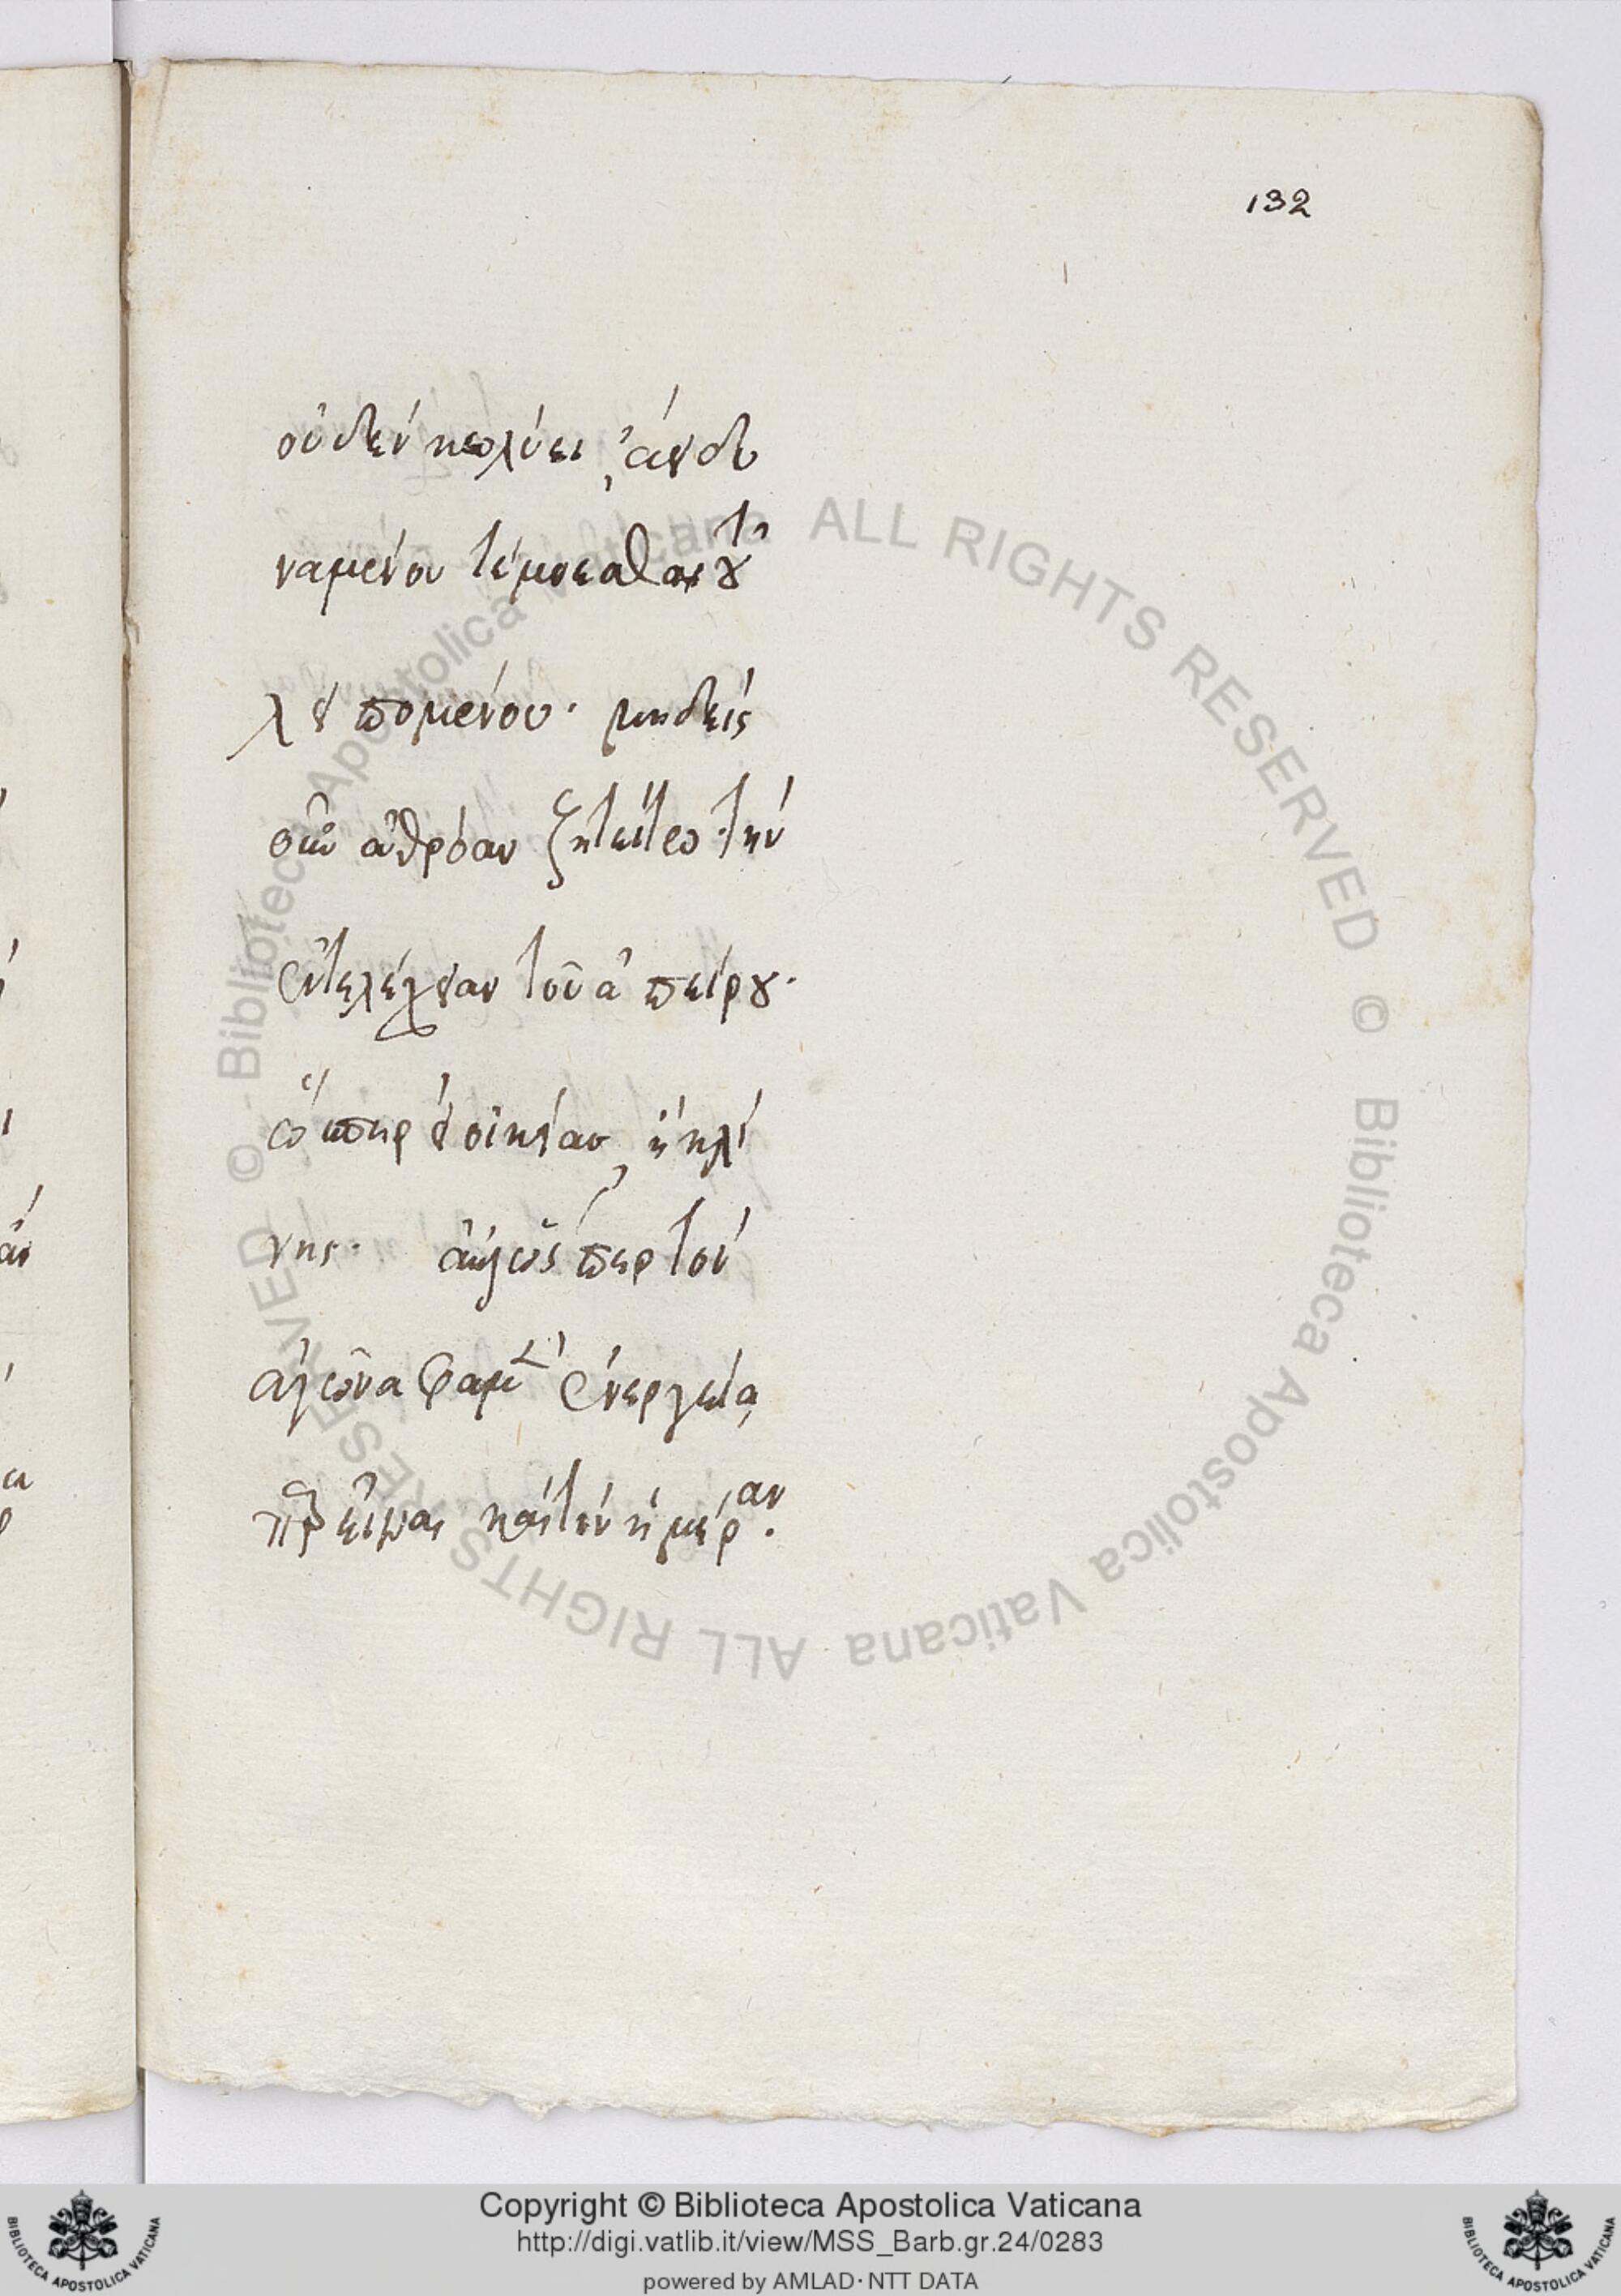 132
οὐδὲν κωλύει, ἀνδυ
ναμένου τέμνεσθαι τοῦ
λυπομένου. μηδεὶς
οὖν ἀθρόαν ζητείτω τὴν
ἐντελέχειαν τοῦ ἀπείρου.
ὥσπερ οἰκίας, ἢ κλί
νης. ἀλλ' ὥσπερ τὸν
ἀγῶνα φαμὲν ἐνεργείᾳ
εἶναι καὶ τὴν ἡμέραν.
© Biblioteca Apostolica Vaticana ALL RIGHTS RESERVED © Biblioteca Apostolica Vaticana ALL RIGHTS RESERVED
Copyright © Biblioteca Apostolica Vaticana
http://digi.vatlib.it/view/MSS_Barb.gr.24/0283
powered by AMLAD · NTT DATA
BIBLIOTECA APOSTOLICA VATICANA
BIBLIOTECA APOSTOLICA VATICANA